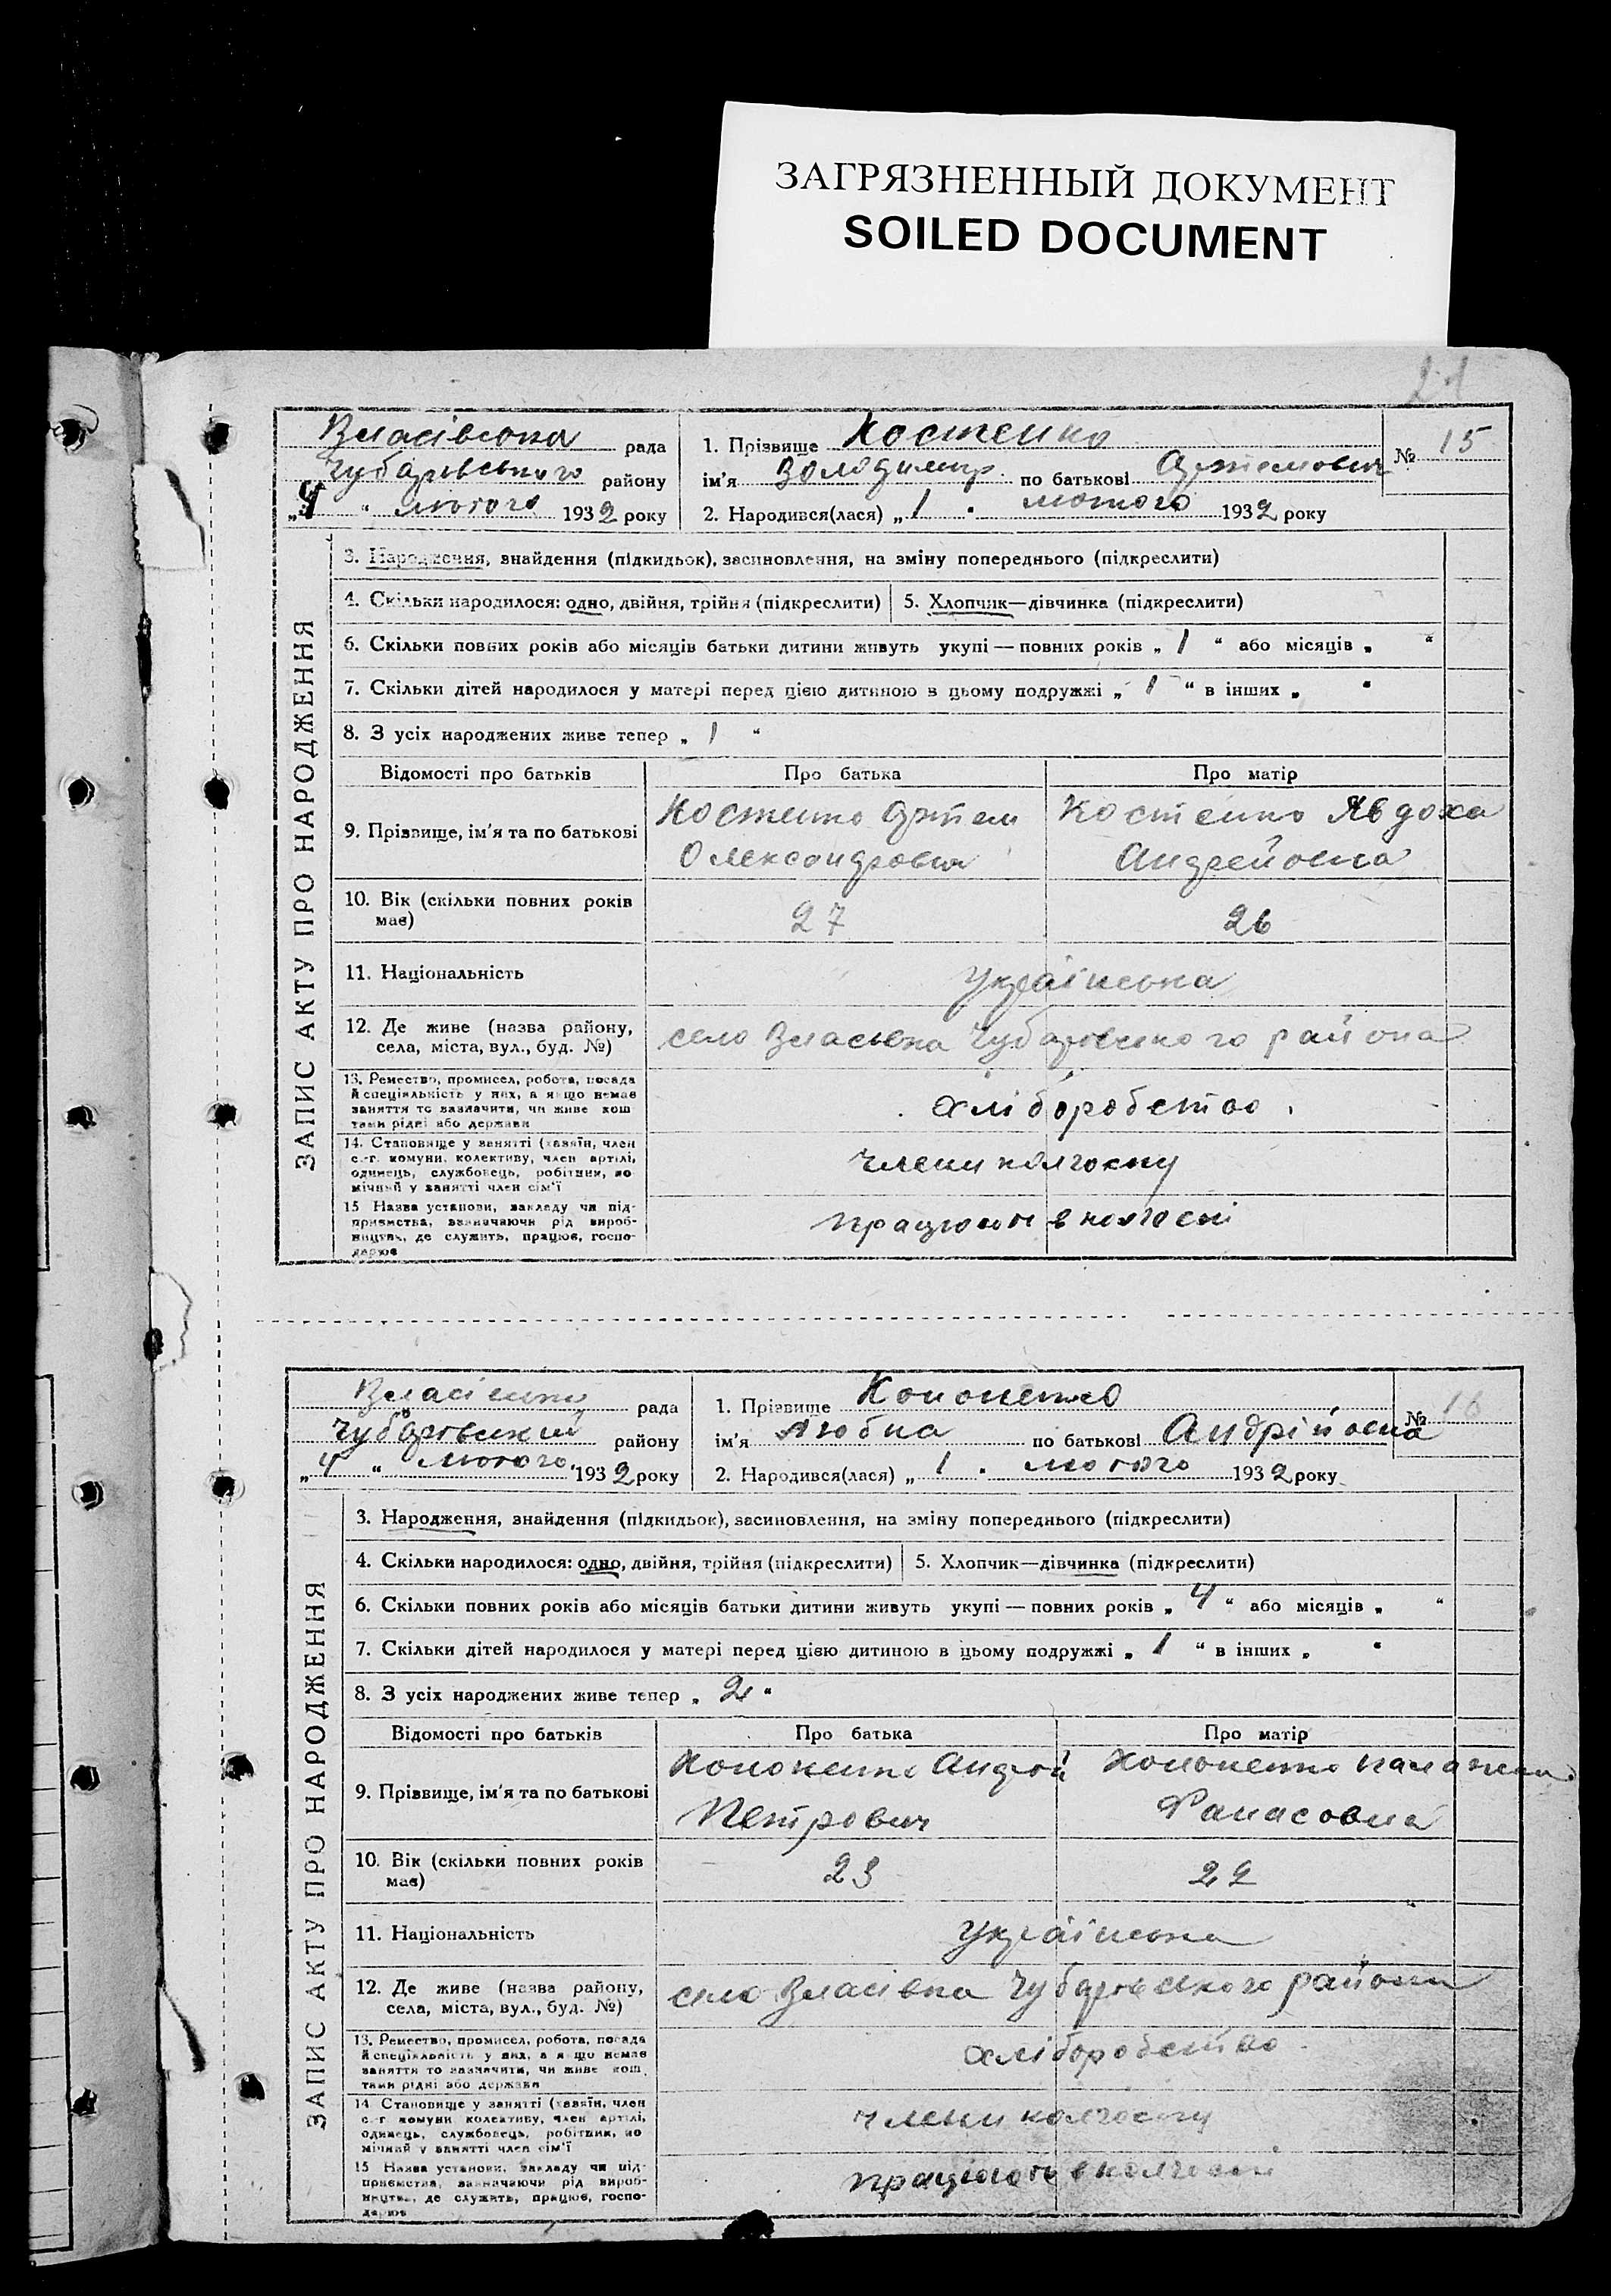 ЗАГРЯЗНЕННЫЙ ДОКУМЕНТ
SOILED DOCUMENT
21
Власівська рада
Чубарівського району
„4“ лютого 1932 року
1. Прізвище Костенко
ім'я Володимир по батькові Артемович
№ 15
2. Народився(лася) „1“ лютого 1932 року
ЗАПИС АКТУ ПРО НАРОДЖЕННЯ
3. Народження, знайдення (підкидьок), засиновлення, на зміну попереднього (підкреслити)
4. Скільки народилося: одно, двійня, трійня (підкреслити) 5. Хлопчик—дівчинка (підкреслити)
6. Скільки повних років або місяців батьки дитини живуть укупі — повних років „1“ або місяців „ “
7. Скільки дітей народилося у матері перед цією дитиною в цьому подружжі „1“ в інших „ “
8. З усіх народжених живе тепер „1“
Відомості про батьків Про батька Про матір
9. Прізвище, ім'я та по батькові
Костенко Артем
Олександрович
Костенко Явдоха
Андрейовна
10. Вік (скільки повних років
має)
27 26
11. Національність Українська
12. Де живе (назва району,
села, міста, вул., буд. №)
село Власівка Чубарівського района
13. Ремество, промисел, робота, посада
й спеціяльність у них, а якщо немає
заняття то зазначити, чи живе кош
тами рідні або держави
хліборобство
14. Становище у занятті (хазяїн, член
с.-г. комуни, колективу, член артілі,
одинець, службовець, робітник, по
мічний у занятті член сім'ї
члени колгоспу
15 Назва установи, закладу чи під-
приємства, зазначаючи рід вироб-
ництва, де служить, працює, госпо-
дарює
працюють в колгоспі
Власівська рада
Чубарівський району
„4“ лютого 1932 року
1. Прізвище Кононенко
ім'я Любка по батькові Андрійовна
№ 16
2. Народився(лася) „1“ лютого 1932 року
ЗАПИС АКТУ ПРО НАРОДЖЕННЯ
3. Народження, знайдення (підкидьок), засиновлення, на зміну попереднього (підкреслити)
4. Скільки народилося: одно, двійня, трійня (підкреслити) 5. Хлопчик—дівчинка (підкреслити)
6. Скільки повних років або місяців батьки дитини живуть укупі — повних років „4“ або місяців „ “
7. Скільки дітей народилося у матері перед цією дитиною в цьому подружжі „1“ в інших „ “
8. З усіх народжених живе тепер „2“
Відомості про батьків Про батька Про матір
9. Прізвище, ім'я та по батькові
Кононенко Андрій
Петрович
Кононенко
Фанасовна
10. Вік (скільки повних років
має)
23 22
11. Національність Українська
12. Де живе (назва району,
села, міста, вул., буд. №)
село Власівка Чубарівського района
13. Ремество, промисел, робота, посада
й спеціяльність у них, а якщо немає
заняття то зазначити, чи живе кош
тами рідні або держави
хліборобство
14 Становище у занятті (хазяїн, член
с.-г комуни колективу, член артілі,
одинець, службовець, робітник, по
мічний у занятті член сім'ї
члени колгоспу
15 Назва установи, закладу чи під-
приємства, зазначаючи рід вироб-
ництва, де служить, працює, госпо-
дарює
працюють в колгоспі